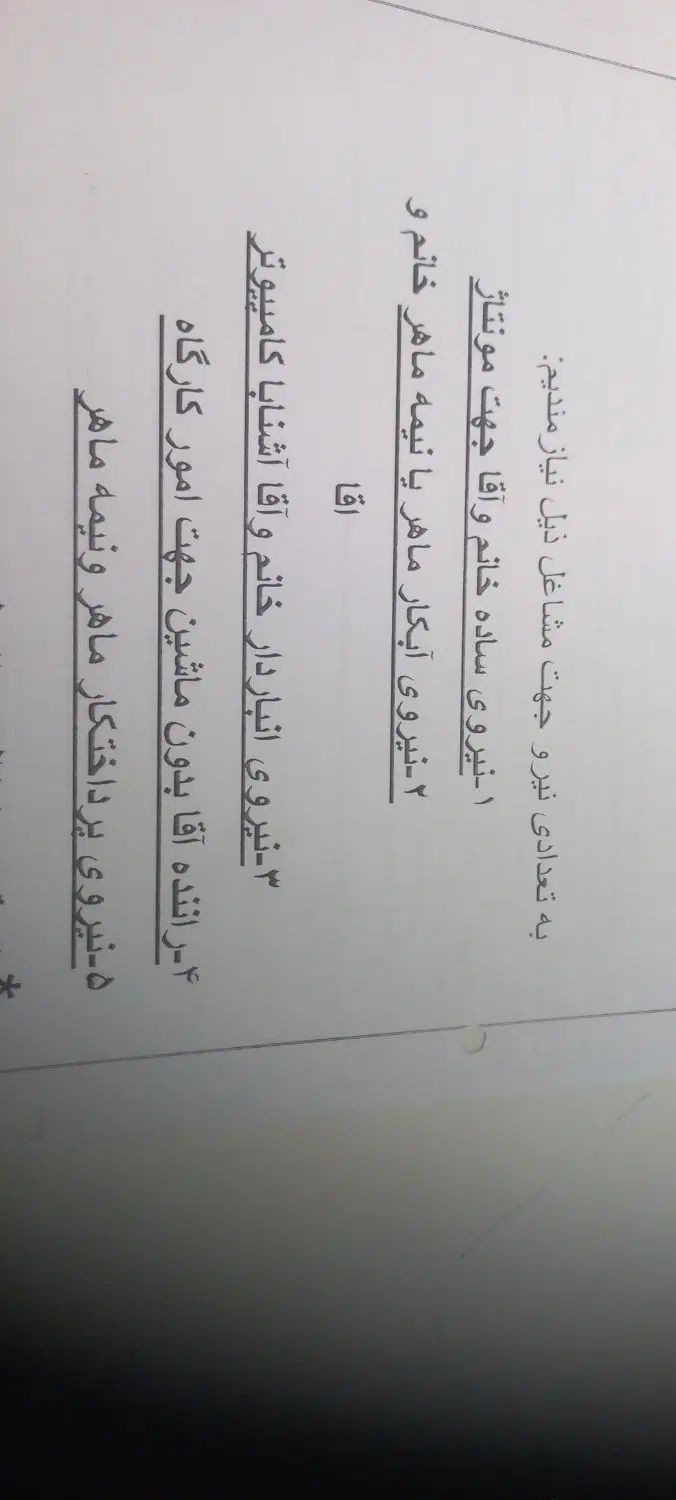 به تعدادی نیرو جهت مشاغل ذیل نیازمندیم:
۱-نیروی ساده خانم وآقا جهت مونتاژ
۲-نیروی آبکار ماهر یا نیمه ماهر خانم و
اقا
۳-نیروی انباردار خانم وآقا آشنابا کامپیوتر
۴-راننده آقا بدون ماشین جهت امور کارگاه
۵-نیروی پرداختکار ماهر ونیمه ماهر
*